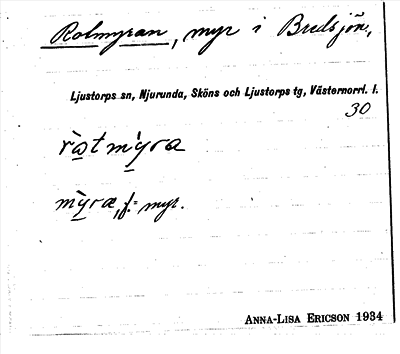 Rotmyran, myr i Bredsjön,
Ljustorps sn, Njurunda, Sköns och Ljustorps tg, Västernorrl. l.
30
mỳra, f. = myr.
ANNA-LISA ERICSON 1934